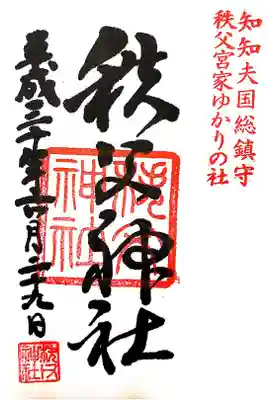 知知夫国総鎮守
秩父宮家ゆかりの社
秩父神社
平成三十年六月二十九日
秩父神社